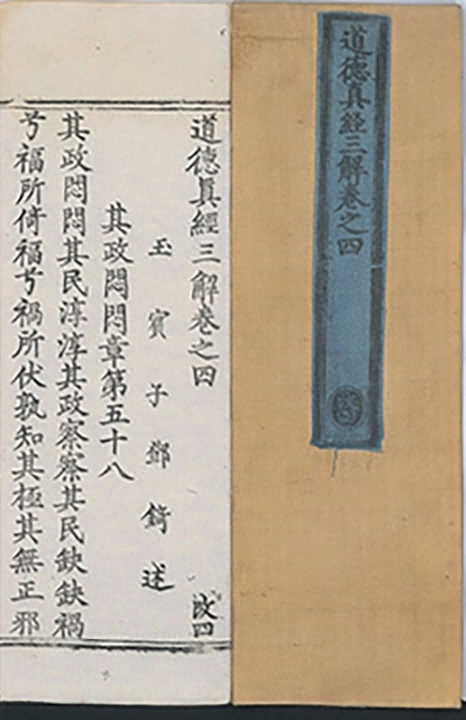 道德真經三解卷之四
道德眞經三解卷之四 改四
玉賓子鄧錡述
其政悶悶章第五十八
其政悶悶其民淳淳其政察察其民缺缺禍
兮福所倚福兮禍所伏孰知其極其無正邪